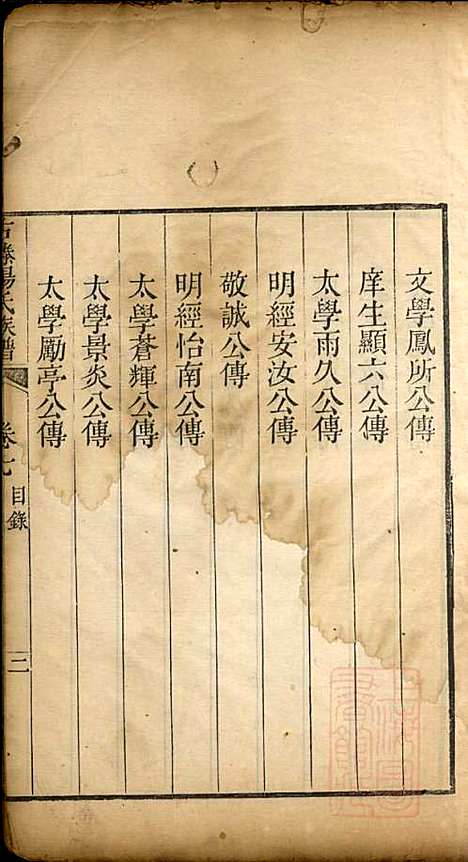 文學鳳所公傳
庠生顯六公傳
太學雨久公傳
明經安汝公傳
敬誠公傳
明經怡南公傳
太學蒼輝公傳
太學景炎公傳
太學勵亭公傳
氏族譜
卷七
目錄
二